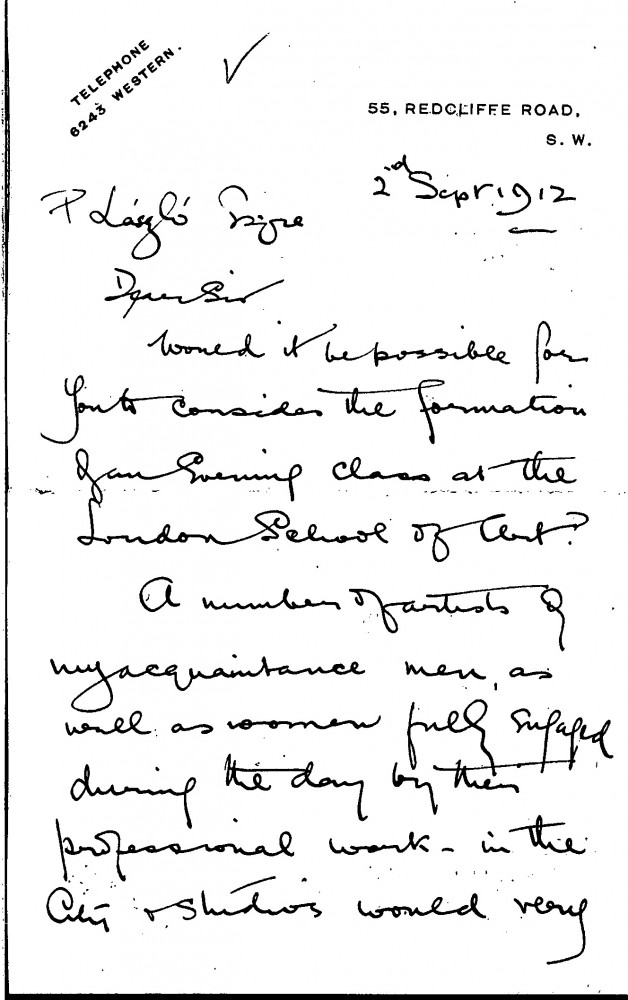 TELEPHONE
6243 WESTERN.
55, REDCLIFFE ROAD,
S. W.
2nd Sept. 1912
P László Esqre
Dear Sir
Would it be possible for
you to consider the formation
of an Evening class at the
London School of Art?
A number of artists of
my acquaintance men, as
well as women fully engaged
during the day by their
professional work – in the
City & Studios would very